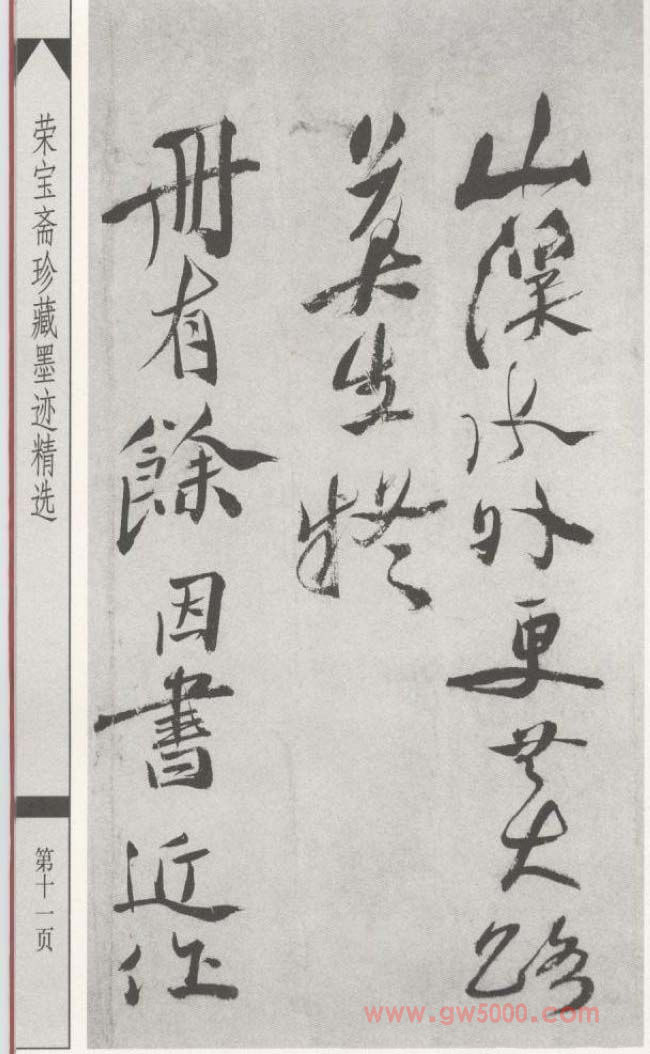 山深水外更無大路
莫生
冊有餘因書近作
荣宝斋珍藏墨迹精选
第十一页
www.gw5000.com